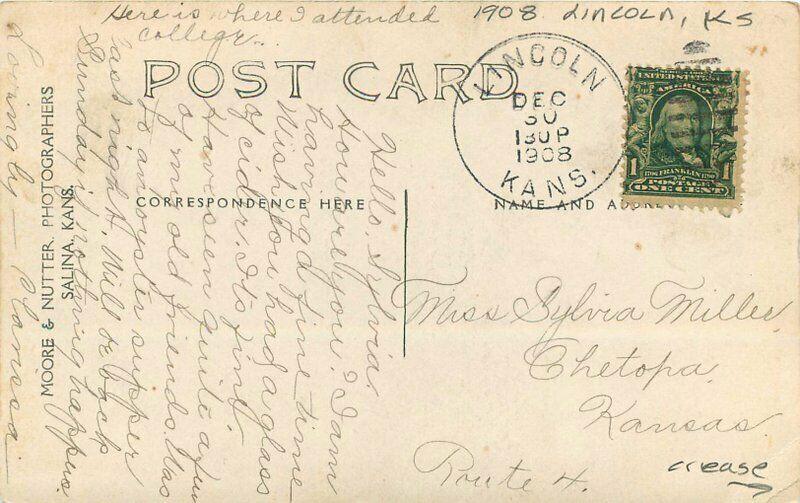 Here is where I attended
college..
1908 LINCOLN, KS
POST CARD
LINCOLN
DEC
30
130P
1908
KANS.
UNITED STATES OF
AMERICA
1 1706 FRANKLIN 1790 1
POSTAGE
ONE CENT
CORRESPONDENCE HERE
NAME AND ADDRE
MOORE & NUTTER. PHOTOGRAPHERS
SALINA. KANS.
Hello, Sylvia.
How are you? I am
having a fine time
Wish you had a glass
of cider. Its fine.
Have seen quite a few
of my old friends. Was
to an oyster supper
last night. Will be back
Sunday if nothing happens.
Lovingly – Clarissa
Miss Sylvia Miller,
Chetopa,
Kansas
Route 4.
crease